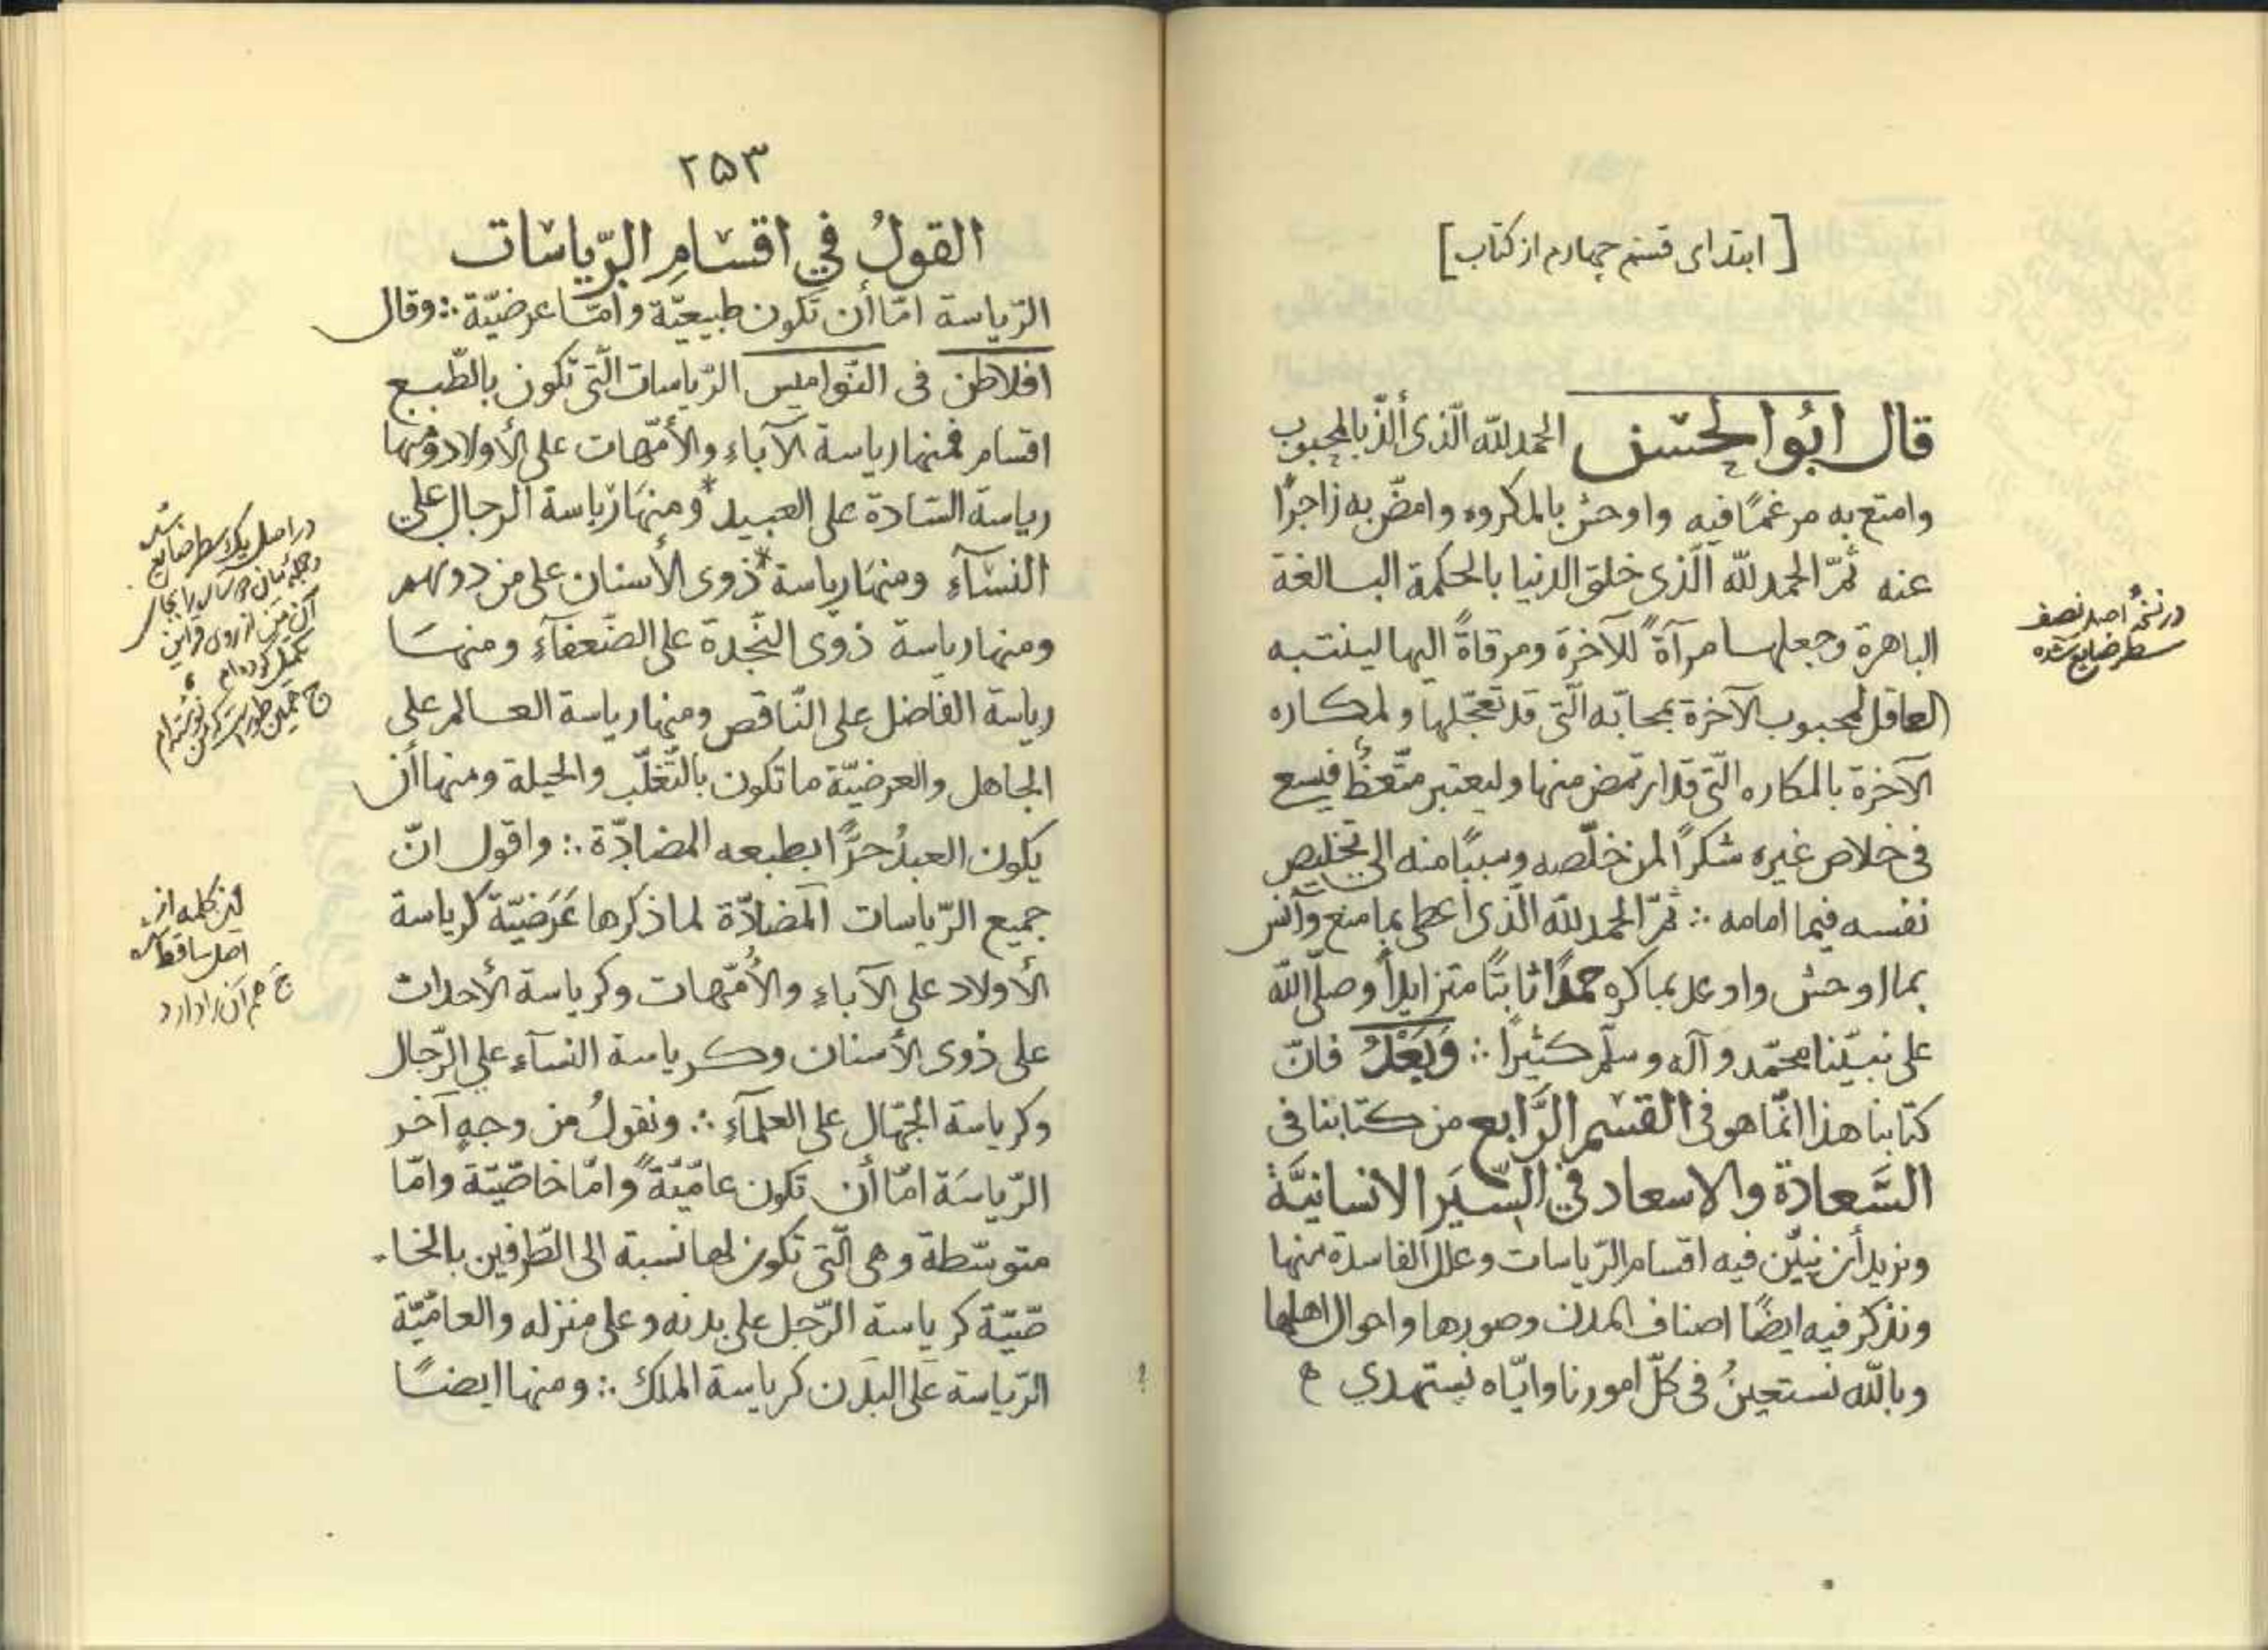 [ ابتدای قسم چهارم از کتاب ]
قال ابُوالحسَن الحمد للّه الّذی ألذّ بالمحبوب
وامتع به مرغمًا فیه واوحش بالمکروه وامضّ به زاجرًا
عنه ثمّ الحمد للّه الّذی خلق الدنیا بالحکمة البالغة
الباهرة وجعلها مرآةً للآخرة ومرقاةً الیها لینتبه
العاقل لمحبوب الآخرة بمحابّه الّتی قد تعجّلها ولمکاره
الآخرة بالمکاره الّتی قد ارتمض منها ولیعتبر متّعظٌ فیسع
فی خلاص غیره شکرًا لمن خلّصه وسببًا منه الی تخلیص
نفسه فیما امامه ∴ ثمّ الحمد للّه الّذی اعطی بما منع وآنس
بما اوحش واوعد بما کره حمدًا ثابتًا متزایدًا وصلّی اللّه
علی نبیّنا محمّد وآله وسلّم کثیرًا ∴ وَبَعْدُ فانّ
کتابنا هذا انّما هو فی القسم الرَّابع من کتابنا فی
السَّعادة والاسعاد فی السّیَر الانسانیَّة
ونرید أن نبیّن فیه اقسام الرّیاسات وعلل الفاسدة منها
ونذکر فیه ایضًا اصناف المدن وصورها واحوال اهلها
وباللّه نستعینُ فی کلّ امورنا وایّاه نستهدي
در نسخهٔ اصل نصف
سطر ضایع شده
۲۵۳
القولُ في اقسَامِ الرّیاسَات
الرّیاسة امّا أن تکون طبیعیّة وامّا عرضیّة ∴ وقال
افلاطن فی النّوامیس الرّیاسات الّتی تکون بالطّبع
اقسام فمنها ریاسة الآباء والأمّهات علی الأولاد ومنها
ریاسة السّادة علی العبید * ومنهَا ریاسة الرجال علی
النسَآء ومنهَا ریاسة * ذوی الأسنان علی من دونهم
ومنها ریاسة ذوی النّجدة علی الضّعفآء ومنهَا
ریاسة الفاضل علی النّاقص ومنها ریاسة العالم علی
الجاهل والعرضیّة ما تکون بالتّغلّب والحیلة ومنها أن
یکون العبدُ حرًّا بطبعه المضادّة ∴ واقول انّ
جمیع الرّیاسات المضادّة لما ذکرها عَرَضیّة کریاسة
الأولاد علی الآباء والأُمّهات وکریاسة الأحداث
علی ذوی الأسنان وکریاسة النسآء علی الرّجال
وکریاسة الجُهّال علی العلمآءِ ∴ ونقولُ من وجهٍ آخر
الرّیاسَة امّا أن تکون عامّیّةً وامّا خاصّیّة وامّا
متوسّطة وهی الّتی تکون لها نسبة الی الطّرفین بالخا-
صّیّة کریاسة الرّجل علی بدنه وعلی منزله والعامّیّة
الرّیاسة عَلَی البَدَن کریاسة الملك ∴ ومنها ایضًا
در اصل یک سطر ضایع شده
آن متن از روی قراین
تکمیل کرده‌ام
این کلمه از
اصل ساقط است
ج هم آن را دارد
؟